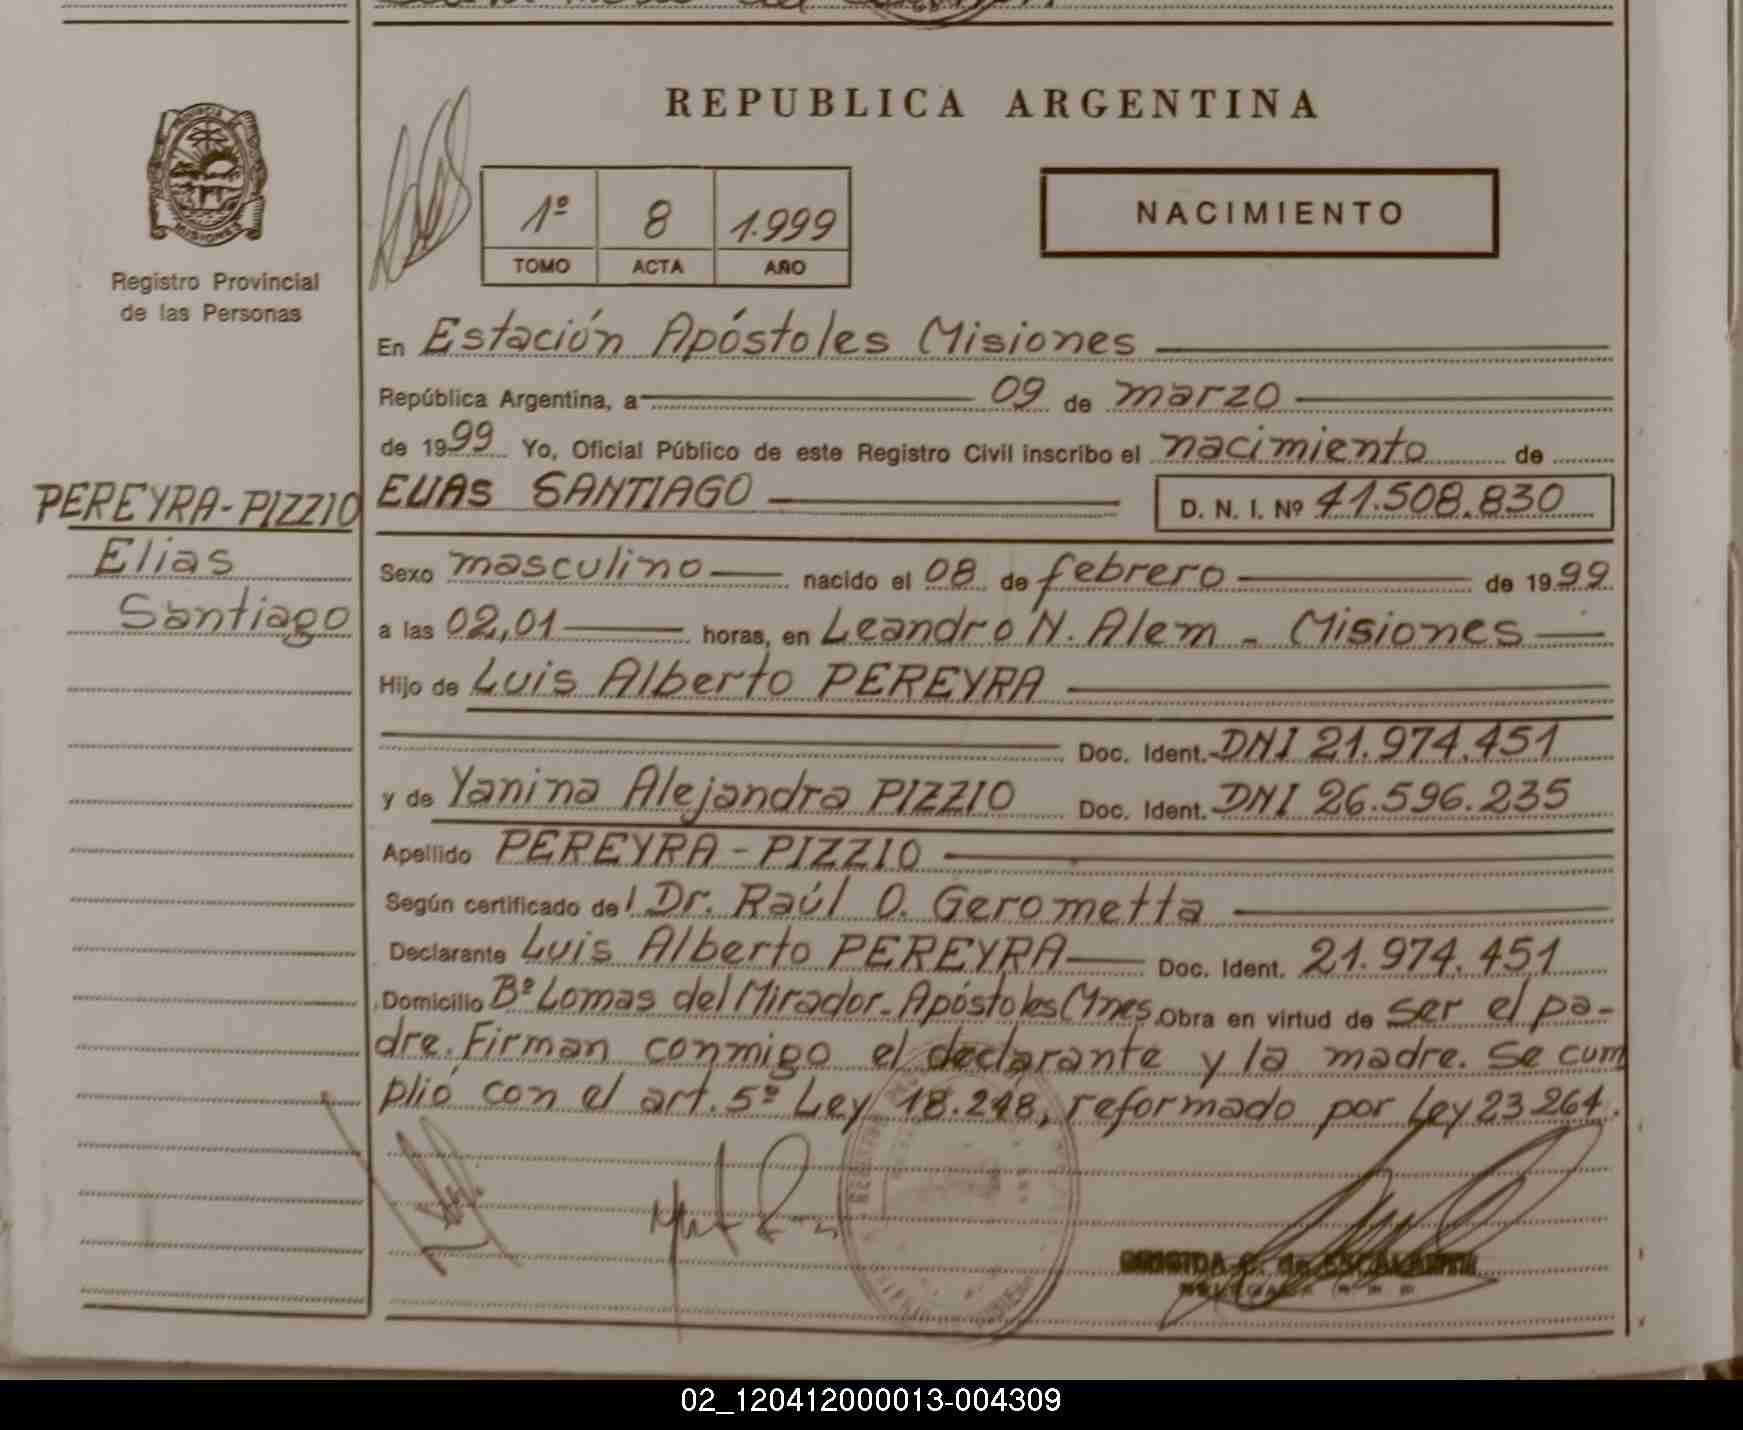 REPUBLICA ARGENTINA
1º 8 1.999
TOMO ACTA AÑO
NACIMIENTO
MISIONES
Registro Provincial
de las Personas
PEREYRA-PIZZIO
Elias
Santiago
En Estación Apóstoles Misiones
República Argentina, a 09 de marzo
de 1999 Yo, Oficial Público de este Registro Civil inscribo el nacimiento de
ELIAS SANTIAGO D. N. I. Nº 41.508.830
Sexo masculino nacido el 08 de febrero de 1999
a las 02,01 horas, en Leandro N. Alem - Misiones
Hijo de Luis Alberto PEREYRA
Doc. Ident. DNI 21.974.451
y de Yanina Alejandra PIZZIO Doc. Ident. DNI 26.596.235
Apellido PEREYRA - PIZZIO
Según certificado del Dr. Raúl O. Gerometta
Declarante Luis Alberto PEREYRA Doc. Ident. 21.974.451
Domicilio Bº Lomas del Mirador - Apóstoles Mnes. Obra en virtud de ser el pa-
dre. Firman conmigo el declarante y la madre. Se cum
plió con el art. 5º Ley 18.248, reformado por Ley 23264.
de ESCALANTE
02_120412000013-004309